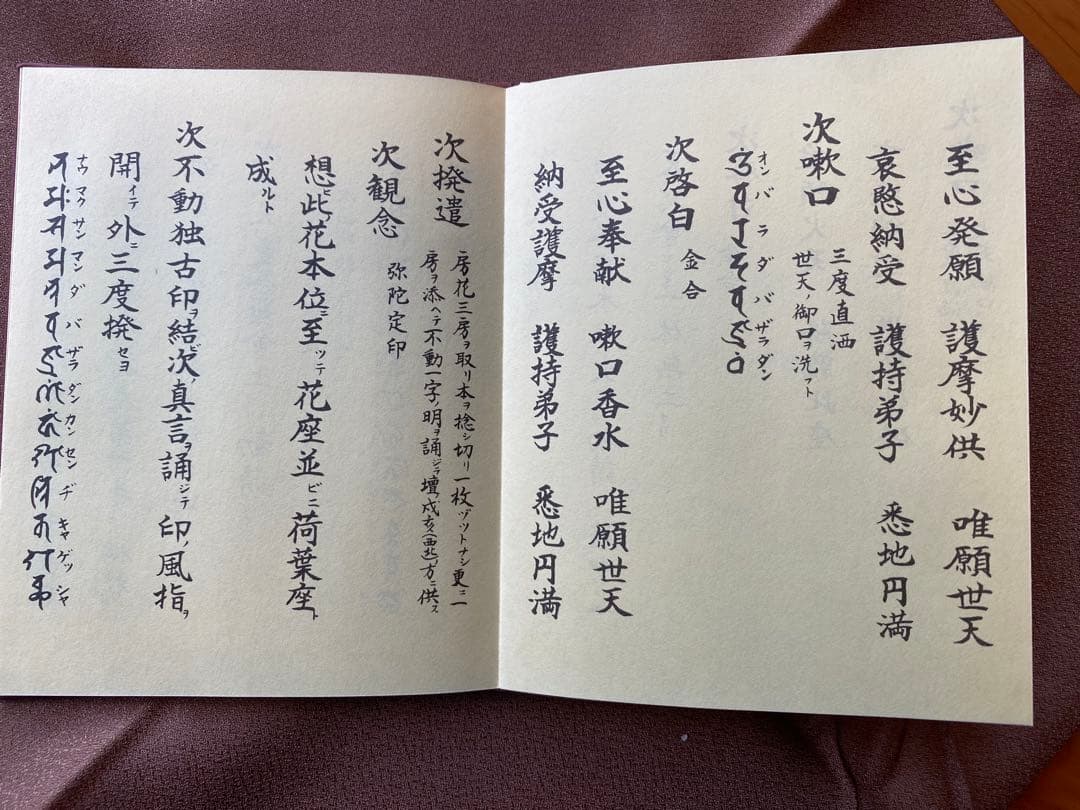 至心発願 護摩妙供 唯願世天
哀愍納受 護持弟子 悉地円満
次嗽口 三度直洒
世天ノ御口ヲ洗フト
オン バ ラ ダ バ ザラ ダン
次啓白 金合
至心奉献 嗽口香水 唯願世天
納受護摩 護持弟子 悉地円満
次撥遣 房花三房ヲ取リ本ヲ捻シ切リ一枚ヅツトナシ更ニ一
房ヲ添ヘテ不動一字ノ明ヲ誦ジテ壇ノ戌亥(西北)ノ方ニ供ス
次観念 弥陀定印
想ヒ此花本位ニ至ツテ花座並ビニ荷葉座ト
成ルト
次不動独古印ヲ結ビ次ノ真言ヲ誦ジテ印ノ風指ヲ
開イテ外ニ三度撥セヨ
ナウ マク サン マン ダ バ ザラ ダン カン セン ヂ キャ ゲッ シャ